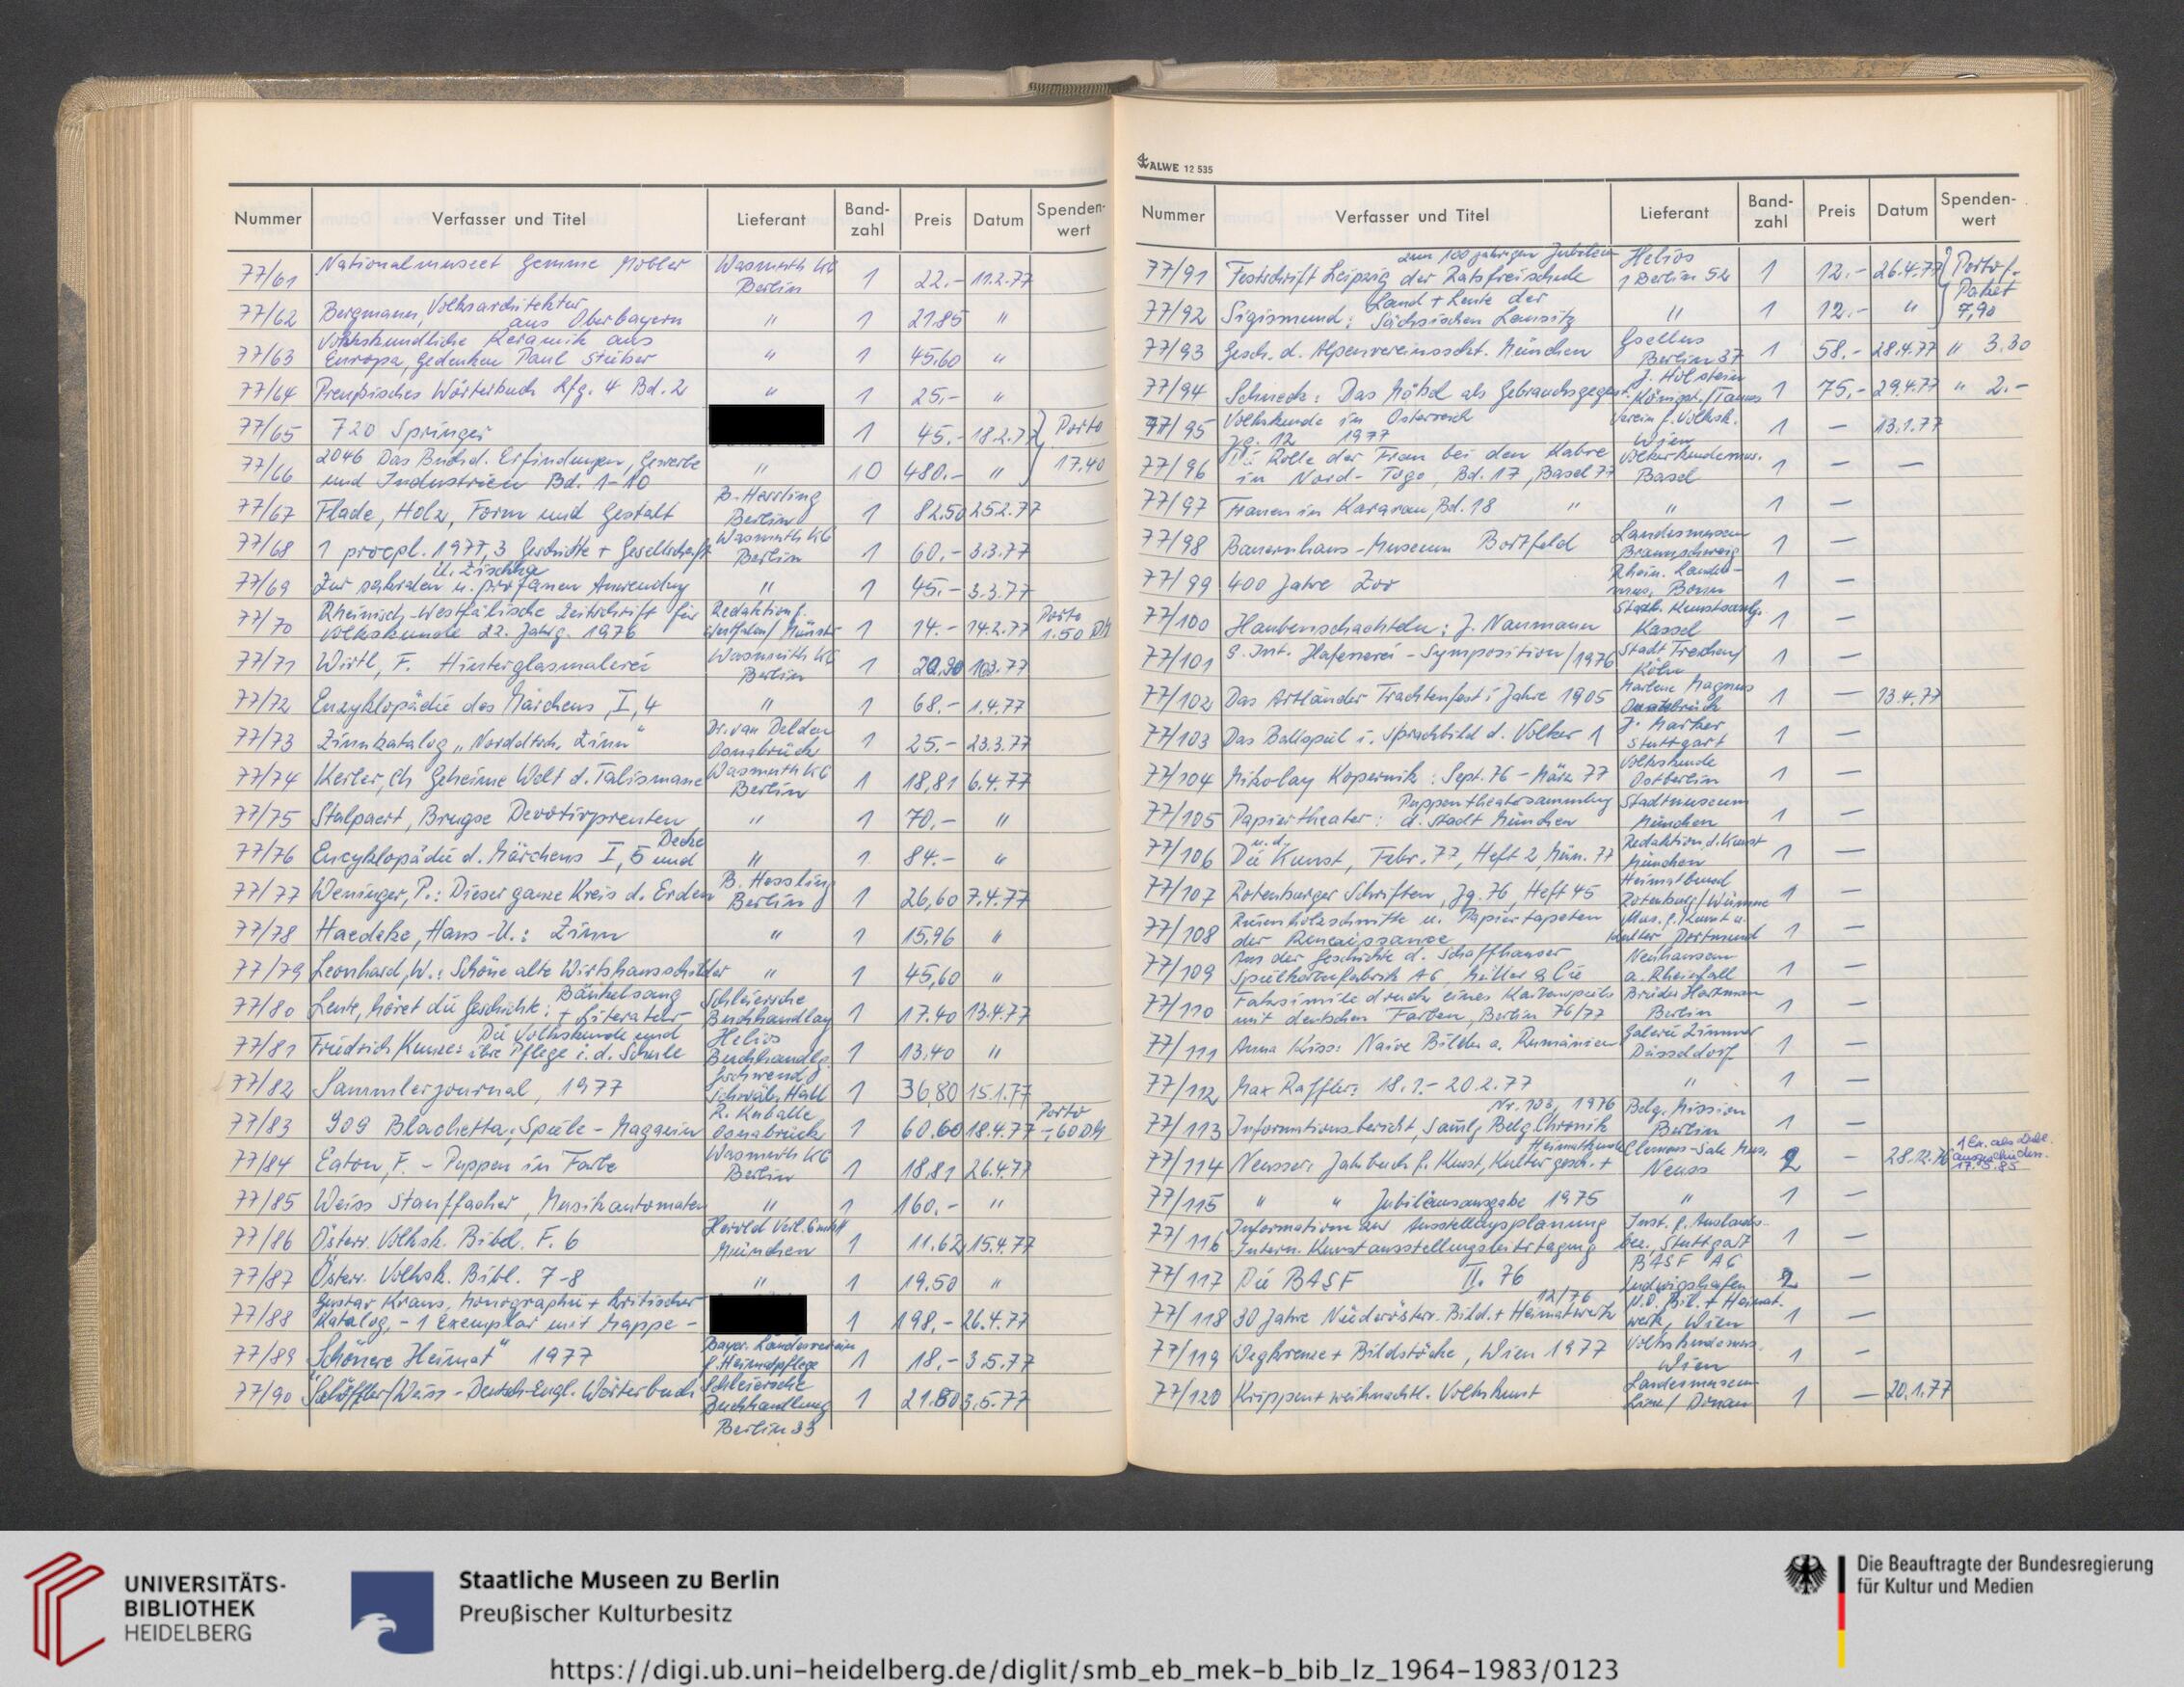 Nummer Verfasser und Titel Lieferant Band-zahl Preis Datum Spenden-wert
77/61 Nationalmuseet Gemme Møbler Wasmuth KG Berlin 1 22.- 11.2.77
77/62 Bergmann, Volksarchitektur aus Oberbayern " 1 21.85 "
77/63 Volkskundliche Keramik aus Europa, Gedenken Paul Stieber " 1 45.60 "
77/64 Preußisches Wörterbuch Lfg. 4 Bd. 2 " 1 25,- "
77/65 720 Springer 1 45.- 18.2.77 Porto
77/66 2046 Das Buch d. Erfindungen, Gewerbe und Industrien Bd. 1-10 " 10 480.- " 17.40
77/67 Flade, Holz, Form und Gestalt B. Hessling Berlin 1 82.50 25.2.77
77/68 1 procpl. 1977,3 Geschichte + Gesellschaft Wasmuth KG Berlin 1 60.- 3.3.77
77/69 Zur sakralen u. profanen Anwendung " 1 45.- 3.3.77
77/70 Rheinisch-Westfälische Zeitschrift für Volkskunde 22. Jahrg. 1976 Redaktion f. Westfalen/Münster 1 14.- 14.2.77 Porto 1.50 DM
77/71 Wirtl, F. Hinterglasmalerei Wasmuth KG Berlin 1
77/72 Enzyklopädie des Märchens, I, 4 " 1 68.- 1.4.77
77/73 Zinnkatalog „Norddtsch. Zinn" Dr. van Delden Osnabrück 1 25.- 23.3.77
77/74 Geheime Welt d. Talismane Wasmuth KG Berlin 1 18,81 6.4.77
77/75 Stalpaert, Brugse Devotieprenten " 1 70.- "
77/76 Encyklopädie d. Märchens I, 5 und Decke " 1 84.- "
77/77 Weninger, P.: Dieser ganze Kreis d. Erden B. Hessling Berlin 1 26,60 7.4.77
77/78 Haedeke, Hans-U.: Zinn " 1 15.96 "
77/79 Leonhard, W.: Schöne alte Wirtshausschilder " 1 45,60 "
77/80 Leute, höret die Geschichte: Bänkelsang + Literatur Schleiersche Buchhandlg 1 17.40 13.4.77
77/81 Friedrich Kunze: Die Volkskunde und ihre Pflege i. d. Schule Helios Buchhandlg. 1 13.40 "
77/82 Sammlerjournal, 1977 Gschwend Schwäb. Hall 1 36,80 15.1.77
77/83 909 Blachetta: Spiele-Magazin R. Kuballe Osnabrück 1 60.60 18.4.77 Porto -,60 DM
77/84 Eaton, F. - Puppen in Farbe Wasmuth KG Berlin 1 18.81 26.4.77
77/85 Weiss Stauffacher, Musikautomaten " 1 160.- "
77/86 Österr. Volksk. Bibl. F. 6 Herold Verl. GmbH München 1 11.62 15.4.77
77/87 Österr. Volksk. Bibl. 7-8 " 1 19.50 "
77/88 Gustav Kraus, Monographie + kritischer Katalog, - 1 Exemplar mit Mappe - 1 198.- 26.4.77
77/89 „Schönere Heimat" 1977 Bayer. Landesverein f. Heimatpflege 1 18.- 3.5.77
77/90 Schöffler/Weiss - Deutsch-Engl. Wörterbuch Schleiersche Buchhandlung Berlin 33 1 21.80 3.5.77
ALWE 12 535
Nummer Verfasser und Titel Lieferant Band-zahl Preis Datum Spenden-wert
77/91 Festschrift Leipzig zum 100 jährigen Jubiläum der Ratsfreischule Helios 1 Berlin 52 1 12.- 26.4.77 Porto f. Paket
77/92 Sigismund: Land + Leute der Sächsischen Lausitz " 1 12.- " 7,90
77/93 Gesch. d. Alpenvereinssekt. München Gsellius Berlin 37 1 58.- 28.4.77 " 3.30
77/94 Das Möbel als Gebrauchsgegenst. J. Holstein Königst./Taunus 1 75,- 29.4.77 " 2.-
77/95 Volkskunde in Österreich Jg. 12 1977 Verein f. Volksk. Wien 1 — 13.1.77
77/96 Die Rolle der Frau bei den Kabre in Nord-Togo, Bd. 17, Basel 77 Völkerkundemus. Basel 1 — —
77/97 Frauen in Kararau, Bd. 18 " " 1 —
77/98 Bauernhaus-Museum Bortfeld Landesmuseum Braunschweig 1 —
77/99 400 Jahre Zoo Rhein. Landesmus. Bonn 1 —
77/100 Haubenschachteln: J. Naumann Staatl. Kunstsamlg. Kassel 1 —
77/101 9. Int. Hafnerei-Symposition/1976 Stadt Frechen/Köln 1 —
77/102 Das Artländer Trachtenfest i. Jahre 1905 Marlene Magnus Osnabrück 1 — 13.4.77
77/103 Das Ballspiel i. Sprachbild d. Völker 1 Stuttgart 1 —
77/104 Mikolay Kopernik: Sept. 76 - März 77 Volkskunde Ostberlin 1 —
77/105 Papiertheater: Puppentheatersammlung d. Stadt München Stadtmuseum München 1 —
77/106 Die Kunst, u. d. Febr. 77, Heft 2, Mün. 77 Redaktion d. Kunst München 1 —
77/107 Rotenburger Schriften, Jg. 76, Heft 45 Heimatbund Rotenburg/Wümme 1 —
77/108 Riesenholzschnitte u. Papiertapeten der Renaissance Mus. f. Kunst u. Kultur Dortmund 1 —
77/109 Aus der Geschichte d. Schaffhauser Spielkartenfabrik AG Müller & Cie Neuhausen a. Rheinfall 1 —
77/110 Faksimiledruck eines Kartenspiels mit deutschen Farben, Berlin 76/77 Brüder Hartmann Berlin 1 —
77/111 Anna Kiss: Naive Bilder a. Rumänien Galerie Zimmer Düsseldorf 1 —
77/112 Max Raffler: 18.1.-20.2.77 " 1 —
77/113 Informationsbericht, Samlg Belg. Chronik Nr. 103, 1976 Belg. Mission Berlin 1 —
77/114 Neusser Jahrbuch f. Kunst, Kulturgesch. + Heimatkunde Clemens-Sels Mus. Neuss 2 - 28.12.76 1 Ex. als Dubl. ausgeschieden. 17.5.85
77/115 " " Jubiläumsausgabe 1975 " 1 —
77/116 Information zur Ausstellungsplanung Intern. Kunstausstellungsleitertagung Inst. f. Auslandsbez. Stuttgart 1 —
77/117 Die BASF II. 76 BASF AG Ludwigshafen 2 —
77/118 30 Jahre Niederösterr. Bild. + Heimatwerk 12/76 N.Ö. Bil. + Heimatwerk, Wien 1 —
77/119 Wegkreuze + Bildstöcke, Wien 1977 Volkskundemus. Wien 1 —
77/120 Krippen + weihnachtl. Volkskunst Landesmuseum Linz/Donau 1 — 20.1.77
UNIVERSITÄTS-
BIBLIOTHEK
HEIDELBERG
Staatliche Museen zu Berlin
Preußischer Kulturbesitz
Die Beauftragte der Bundesregierung
für Kultur und Medien
https://digi.ub.uni-heidelberg.de/diglit/smb_eb_mek-b_bib_lz_1964-1983/0123